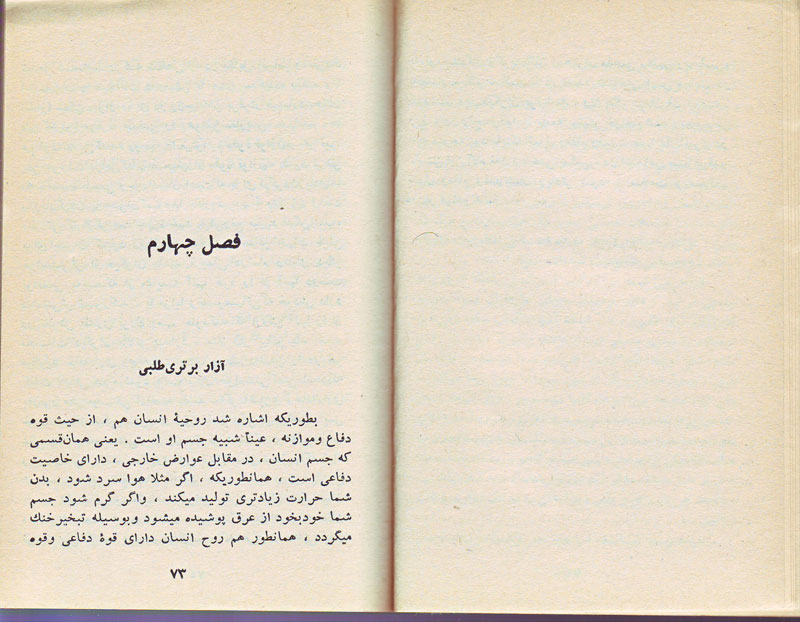 فصل چهارم
آزار برتری‌طلبی
بطوریکه اشاره شد روحیهٔ انسان هم ، از حیث قوه
دفاع وموازنه ، عیناً شبیه جسم او است . یعنی همان‌قسمی
که جسم انسان ، در مقابل عوارض خارجی ، دارای خاصیت
دفاعی است ، همانطوریکه ، اگر مثلا هوا سرد شود ، بدن
شما حرارت زیادتری تولید میکند ، واگر گرم شود جسم
شما خودبخود از عرق پوشیده میشود وبوسیله تبخیرخنك
میگردد ، همانطور هم روح انسان دارای قوهٔ دفاعی وقوه
۷۳